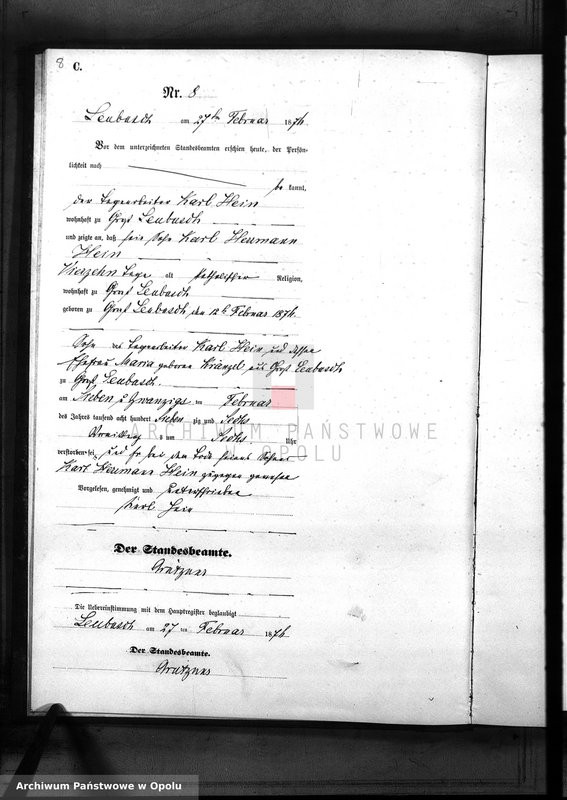 8 C.
Nr. 8
Leubusch am 27ten Februar 1876
Vor dem unterzeichneten Standesbeamten erschien heute, der Persön-
lichkeit nach
be kannt,
der Tagearbeiter Karl Hein
wohnhaft zu Groß Leubusch
und zeigte an, daß sein Sohn Karl Hermann
Hein
Vierzehn Tage alt katholischer Religion,
wohnhaft zu Groß Leubusch
geboren zu Groß Leubusch den 12ten Februar 1876
Sohn des Tagearbeiter Karl Hein und dessen
Ehefrau Maria geborene Kränzel aus Groß Leubusch
zu Groß Leubusch
am Sieben u Zwanzigsten Februar
des Jahres tausend acht hundert Sieben zig und Sechs
Vormittags um Sechs Uhr
verstorben sei, und er bei dem Tode seines Sohnes
Karl Hermann Hein zugegen gewesen
Vorgelesen, genehmigt und Unterschrieben
Karl Hein
Der Standesbeamte.
Grützner
Die Uebereinstimmung mit dem Hauptregister beglaubigt
Leubusch am 27 ten Februar 1876
Der Standesbeamte.
Grützner
ARCHIWUM PAŃSTWOWE
W OPOLU
Archiwum Państwowe w Opolu